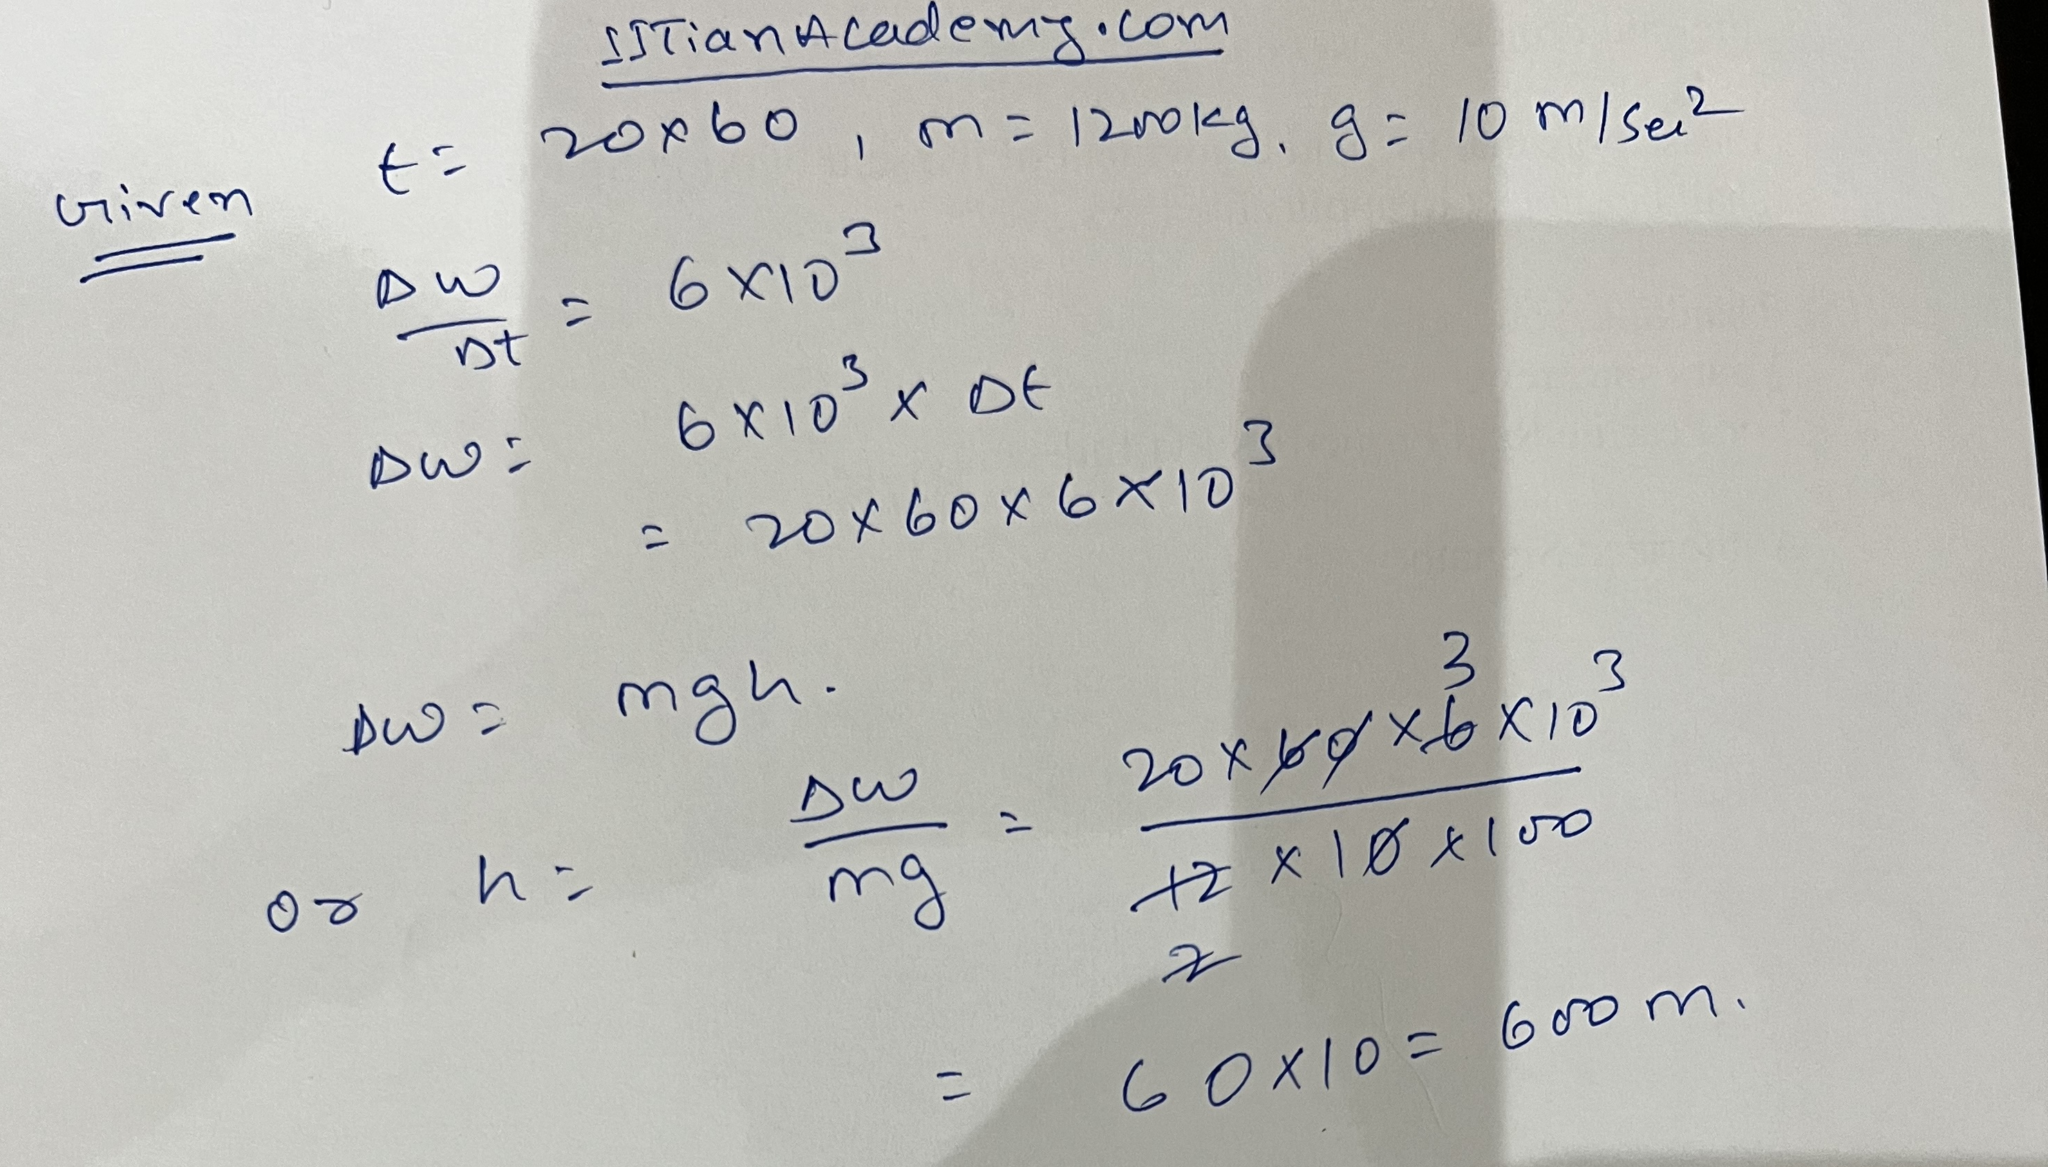 IITianAcademy.com
Given t = 20×60, m = 1200kg, g = 10 m/sec²
ΔW/Δt = 6×10³
ΔW = 6×10³ × Δt
= 20×60×6×10³
ΔW = mgh.
or h = ΔW/mg = 20×60×6×10³/12×10×100
3
2
= 60×10 = 600 m.